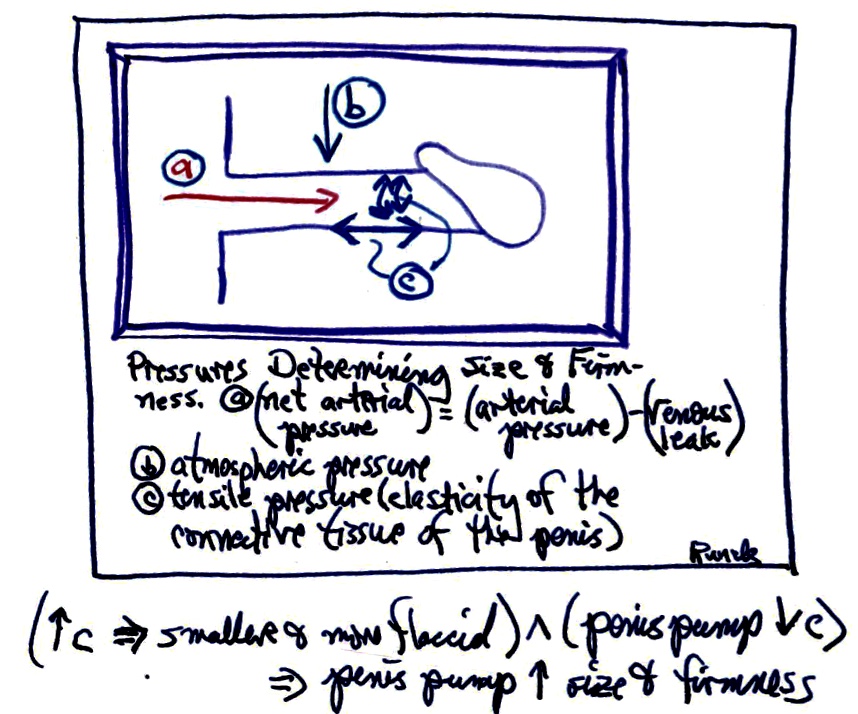 a
b
c
Pressures Determining Size & Firm-
ness. ⓐ (net arterial pressure) = (arterial pressure) - (venous leak)
ⓑ atmospheric pressure
ⓒ tensile pressure (elasticity of the
connective tissue of the penis)
Runels
(↑c ⇒ smaller & more flaccid) ∧ (penis pump ↓c)
⇒ penis pump ↑ size & firmness